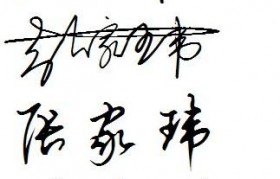 张家玮
张家玮